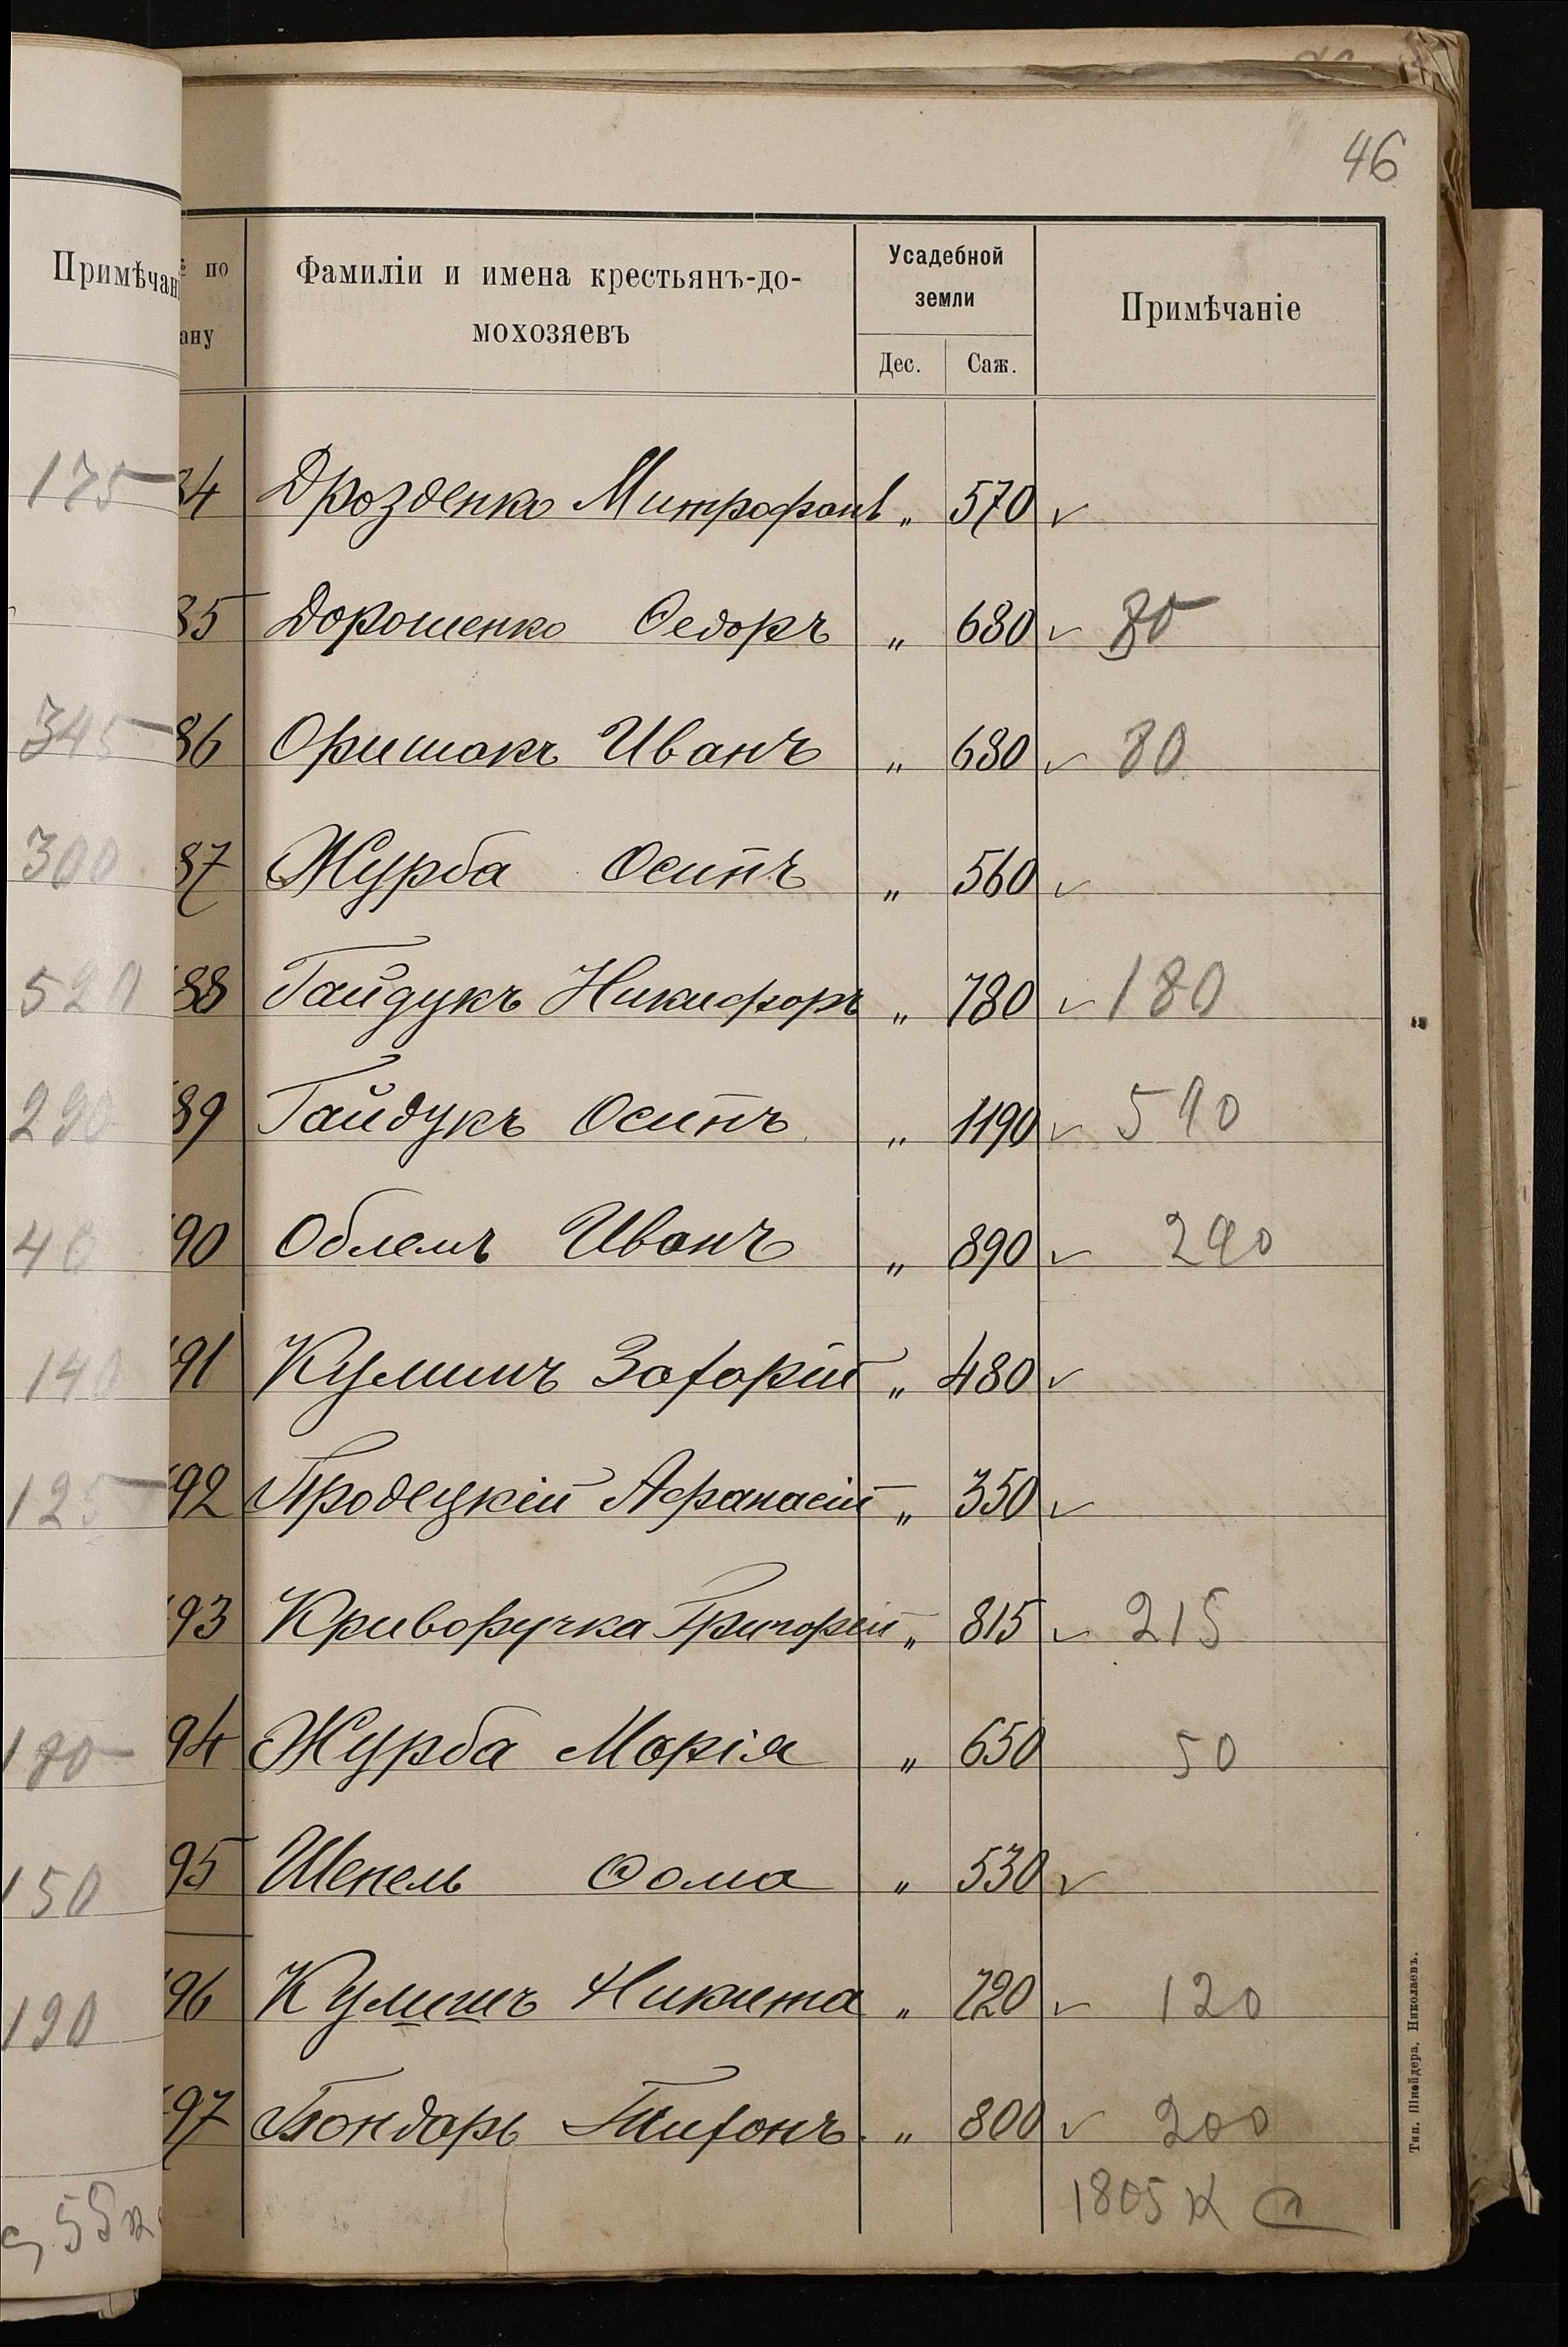 46
Примѣчан
по
ану
Фамиліи и имена крестьянъ-до-
мохозяевъ
Усадебной
земли
Дес.
Саж.
Примѣчаніе
175
84 Дрозденко Митрофанъ " 570 ✓
85 Дорошенко Ѳедоръ " 680 ✓ 80
345
86 Оришакъ Иванъ " 680 ✓ 80
300
87 Журба Осипъ " 560 ✓
520
88 Гайдукъ Никифоръ " 780 ✓ 180
290
89 Гайдукъ Осипъ " 1190 ✓ 590
40
90 Облемъ Иванъ " 890 ✓ 290
140
91 Кулишъ Захарій " 480 ✓
125
92 Бродецкій Афанасій " 350 ✓
93 Криворучка Григорій " 815 ✓ 215
180
94 Журба Марія " 650 50
150
95 Шепель Ѳома " 530 ✓
190
96 Кулишъ Никита " 720 ✓ 120
97 Бондарь Тихонъ " 800 ✓ 200
55
1805 к
Тип. Шнейдера, Николаевъ.